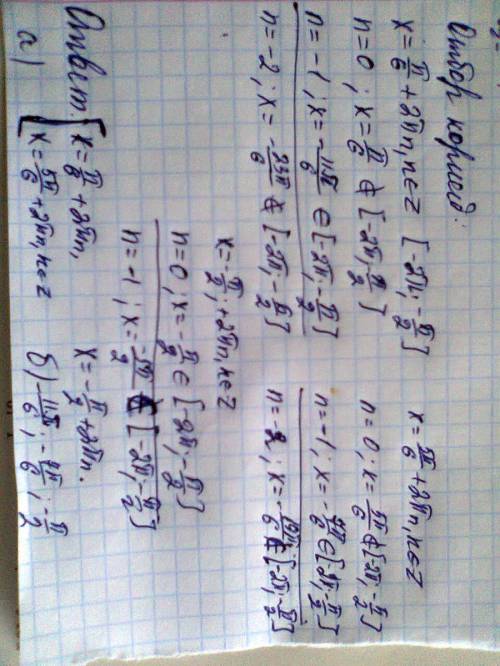 Отбор корней:
x = π/6 + 2πn, n∈Z [-2π; -π/2]
n=0; x = π/6 ∉ [-2π; π/2]
n=-1; x = -11π/6 ∈ [-2π; -π/2]
n=-2; x = -23π/6 ∉ [-2π; -π/2]
x = 5π/6 + 2πn, n∈Z
n=0, x = 5π/6 ∉ [-2π; -π/2]
n=-1; x = -7π/6 ∈ [-2π; -π/2]
n=-2; x = -19π/6 ∉ [-2π; -π/2]
x = -π/2 + 2πn, n∈Z
n=0, x = -π/2 ∈ [-2π; -π/2]
n=-1; x = -5π/2 ∉ [-2π; -π/2]
Ответ:
а) [x = π/6 + 2πn,
x = 5π/6 + 2πn, n∈Z
x = -π/2 + 2πn.
б) -11π/6; -7π/6; -π/2